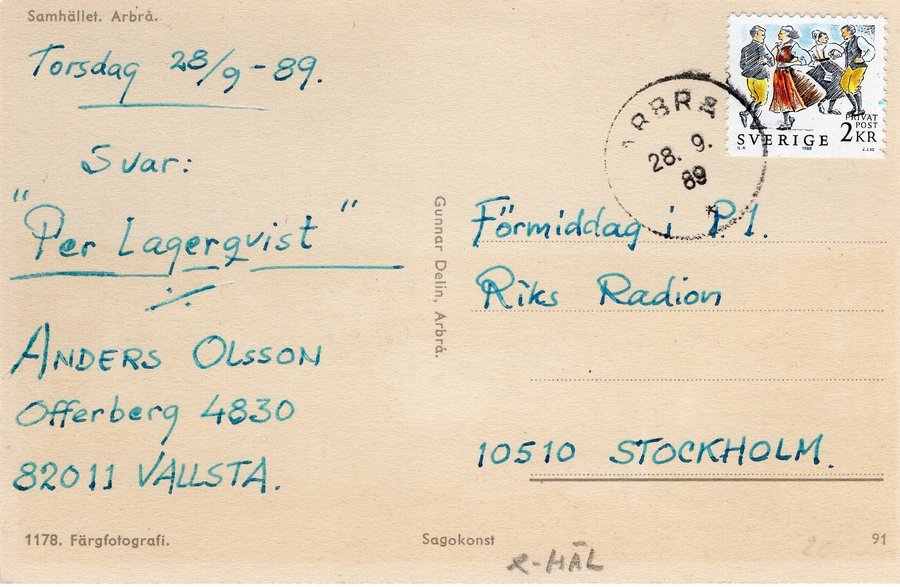 Samhället. Arbrå.
Torsdag 28/9-89.
Svar:
"Per Lagerqvist"
ANDERS OLSSON
Offerberg 4830
82011 VALLSTA.
1178. Färgfotografi.
Gunnar Delin, Arbrå.
Sagokonst
PRIVAT
POST
SVERIGE 2KR
1988
ARBRÅ
28. 9.
89
Förmiddag i P.1.
Riks Radion
10510 STOCKHOLM.
91